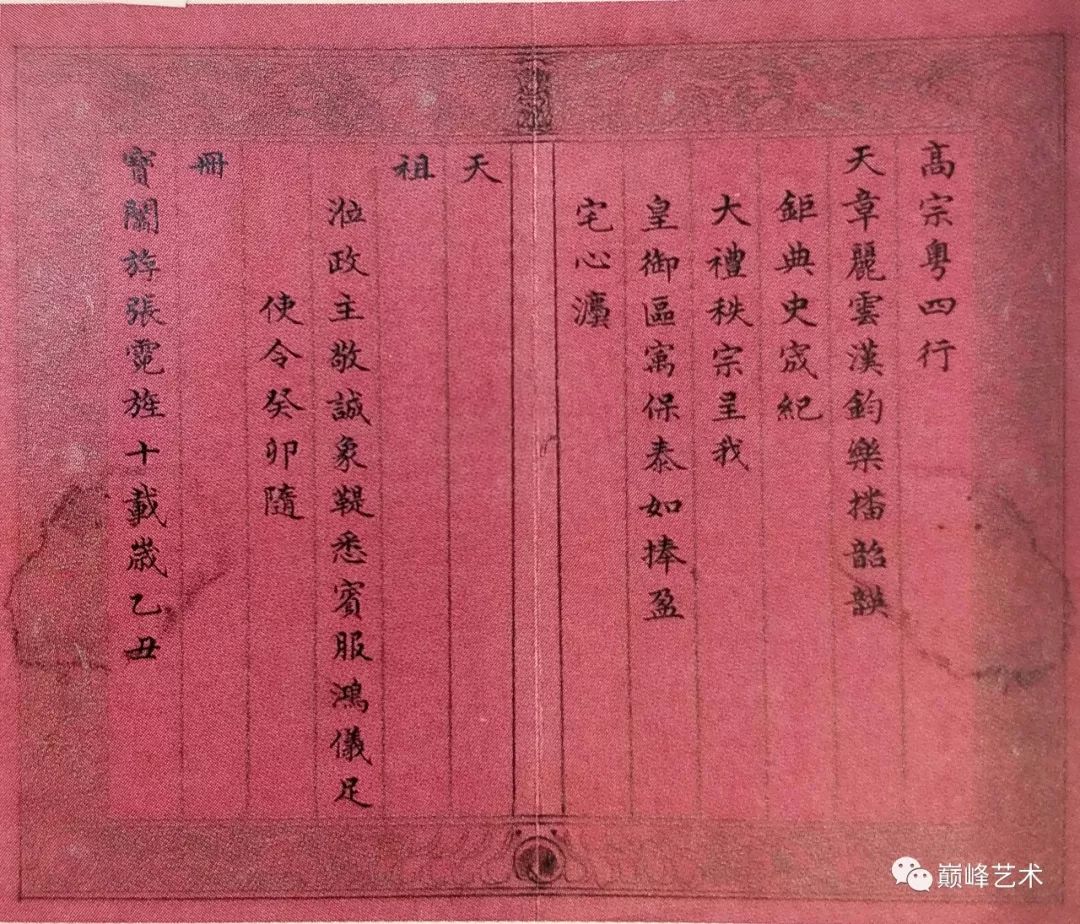 高宗粵四行
天章麗雲漢鈞樂擋韶韺
鉅典史宬紀
大禮秩宗呈我
皇御區寓保泰如捧盈
宅心瀆
天
祖
涖政主敬誠象鞮悉賓服鴻儀足
使令癸卯隨
冊
寶關旃張霓旌十載歲乙丑
巅峰艺术